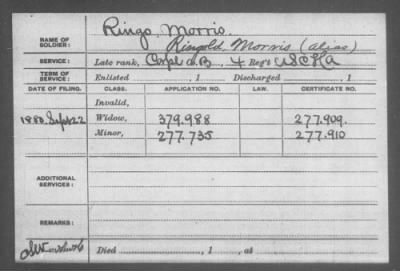 Ringo, Morris.
NAME OF SOLDIER:
Ringold, Morris (alias)
SERVICE: Late rank, Corpl Co. B, 4 Reg't U S C H A
TERM OF SERVICE: Enlisted , 1 Discharged , 1
DATE OF FILING. CLASS. APPLICATION NO. LAW. CERTIFICATE NO.
Invalid,
1880 Sept 22 Widow, 379.988 277.909.
Minor, 277.735 277.910
ADDITIONAL SERVICES:
REMARKS:
Died , 1 , at